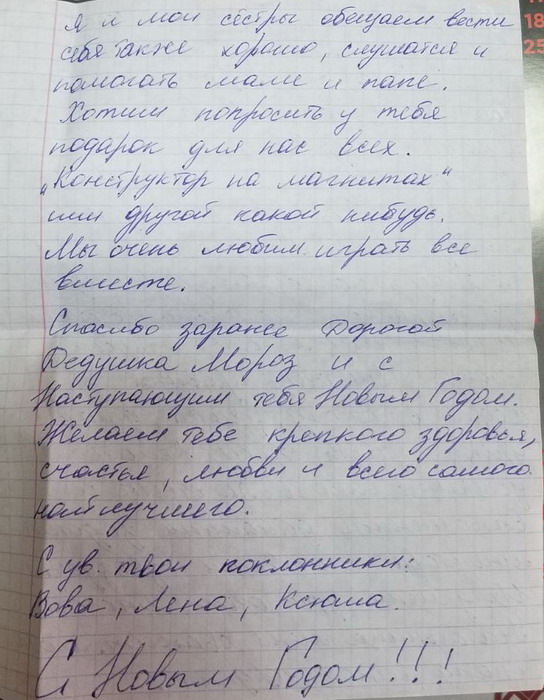 Я и мои сёстры обещаем вести
себя также хорошо, слушатся и
помогать маме и папе.
Хотим попросить у тебя
подарок для нас всех.
„Конструктор на магнитах"
или другой какой нибудь.
Мы очень любим играть все
вместе.
Спасибо заранее Дорогой
Дедушка Мороз и с
Наступающим тебя Новым Годом.
Желаем тебе крепкого здоровья,
счастья, любви и всего самого
наилучшего.
С ув. твои поклонники:
Вова, Лена, Ксюша.
С Новым Годом!!!
18
25